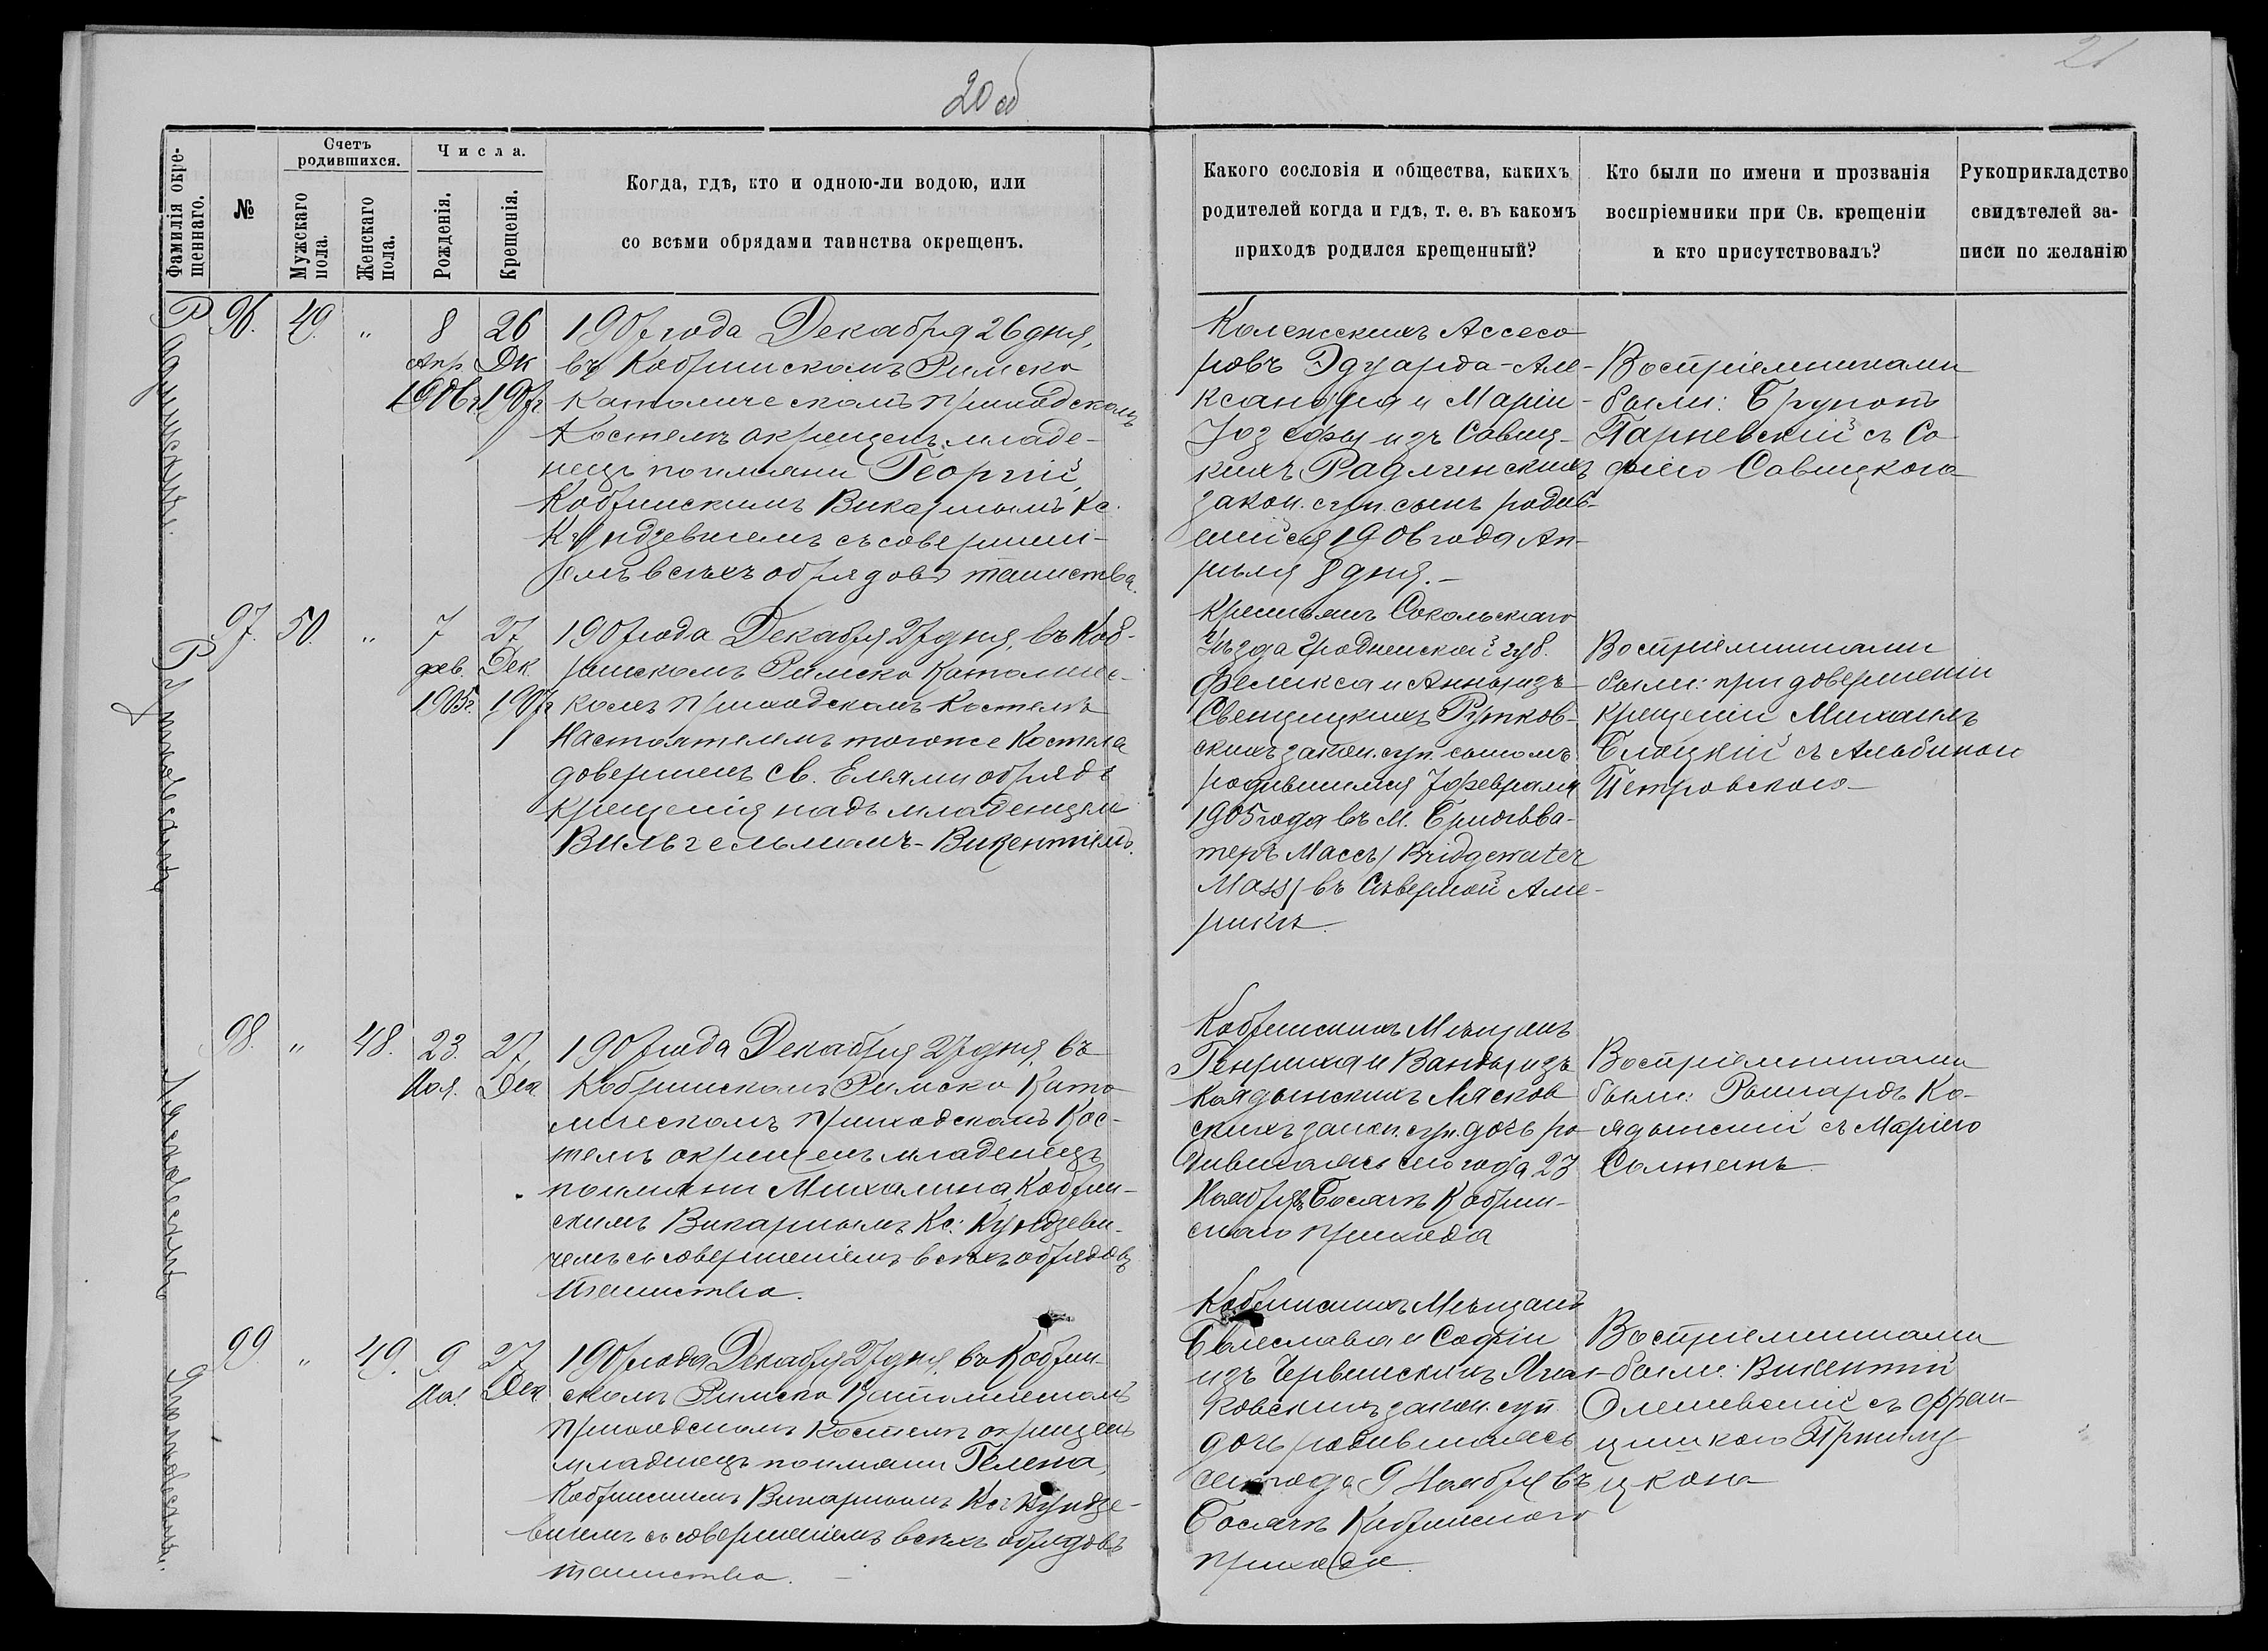 20 об
21
Фамилія окре-
щеннаго.
№
Счетъ
родившихся.
Мужскаго
пола.
Женскаго
пола.
Числа.
Рожденія.
Крещенія.
Когда, гдѣ, кто и одною-ли водою, или
со всѣми обрядами таинства окрещенъ.
Какого сословія и общества, какихъ
родителей когда и гдѣ, т. е. въ какомъ
приходѣ родился крещенный?
Кто были по имени и прозванія
воспріемники при Св. крещеніи
и кто присутствовалъ?
Рукоприкладство
свидѣтелей за-
писи по желанію
96. 49. „ 8 26
Апр. Дк
1906г. 1907г
1907 года Декабря 26 дня,
въ Кобринскомъ Римско
Католическомъ приходскомъ
Костелѣ окрещенъ младе-
нецъ по имени Георгій,
Кобринскимъ Викарнымъ Кс.
Кундзевичемъ съ совершені-
емъ всѣхъ обрядовъ таинства.
Колежскихъ Ассесо
ровъ Эдуарда-Але-
ксандра и Маріи-
Юзефы изъ Савиц-
кихъ Радлинскихъ
закон. суп. сынъ родив-
шійся 1906 года Ап-
рѣля 8 дня.–
Воспріемниками
были: Брунонъ
Парневскій съ Со
фіею Савицкою
Рутковскій
97. 50. „ 7 27
фев. Дек.
1905г. 1907г
1907 года Декабря 27 дня, въ Коб-
ринскомъ Римско Католичес-
комъ приходскомъ Костелѣ
Настоятелемъ тогоже Костела
довершенъ св. Елеями обрядъ
крещенія надъ младенцемъ
Вильгельмомъ-Викентіемъ.
Крестьянъ Сокольскаго
Уѣзда Гродненской губ.
Феликса и Анны изъ
Свенцицкихъ Рутков-
скихъ закон. суп. сыномъ
родившимся 7 февраля
1905 года въ М. Бриджва-
теръ Массъ / Bridgewater
Mass / въ Сѣверной Аме-
рикѣ.
Воспріемниками
были: при довершеніи
крещенія Михаилъ
Блоцкій съ Альбиною
Петровскою
Лясковская
98. „ 48. 23. 27
Ноя. Дек.
1907 года Декабря 27 дня, въ
Кобринскомъ Римско Като
лическомъ приходскомъ Кос-
телѣ окрещенъ младенецъ
по имени Михалина Кобрин-
скимъ Викарнымъ Кс. Кундзеви-
чемъ съ совершеніемъ всѣхъ обрядовъ
таинства.
Кобринскихъ Мѣщанъ
Генриха и Ванды изъ
Колдынскихъ Лясков
скихъ закон. суп. дочь ро
дившаяся сего года 23
Ноября въ Босячѣ Кобрин-
скаго прихода
Воспріемниками
были: Ришардъ Ко-
лдынскій съ Маріею
99. „ 49. 9 27
Ноя. Дек
1907 года Декабря 27 дня, въ Кобрин-
скомъ Римско Католическомъ
приходскомъ Костелѣ окрещенъ
младенецъ по имени Гелена,
Кобринскимъ Викарнымъ Кс. Кундзе-
вичемъ съ совершеніемъ всѣхъ обрядовъ
таинства. –
Кобринскихъ Мѣщанъ
Болеслава и Софіи
изъ Червинскихъ
ковскихъ закон. суп.
дочь родившаяся
сего года 9 Ноября въ
Босячѣ Кобринскаго
прихода.
Воспріемниками
были: Викентій
съ Фран-
цишкою